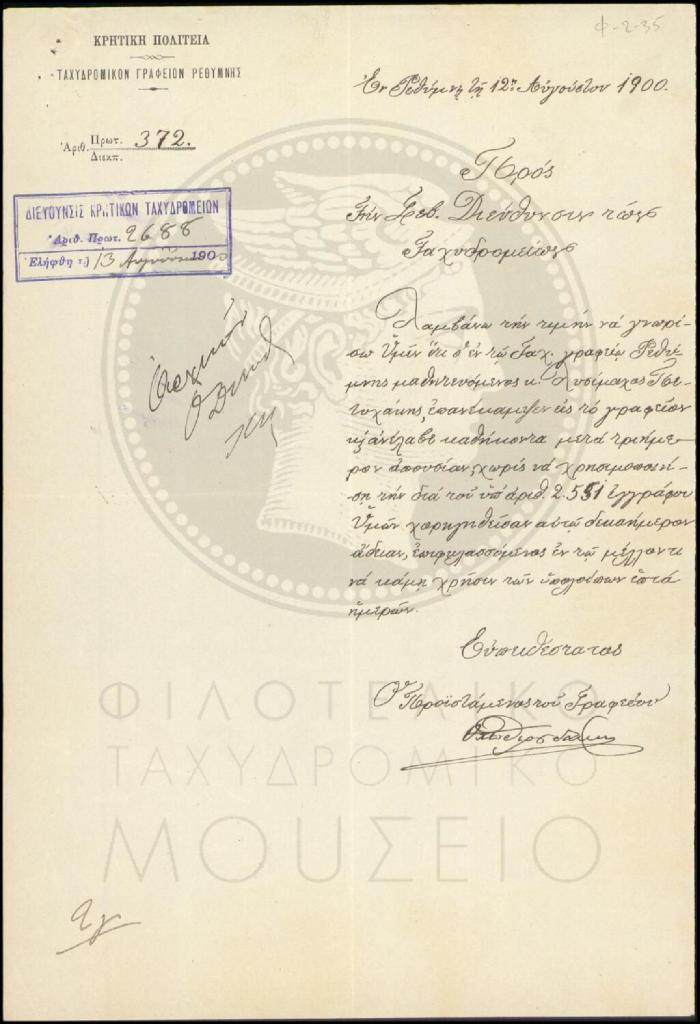 Φ-2-35
ΚΡΗΤΙΚΗ ΠΟΛΙΤΕΙΑ
ΤΑΧΥΔΡΟΜΙΚΟΝ ΓΡΑΦΕΙΟΝ ΡΕΘΥΜΝΗΣ
Ἐν Ρεθύμνῃ τῇ 12ῃ Αὐγούστου 1900.
Ἀριθ. Πρωτ. 372.
Διεκπ.
ΔΙΕΥΘΥΝΣΙΣ ΚΡΗΤΙΚΩΝ ΤΑΧΥΔΡΟΜΕΙΩΝ
Ἀριθ. Πρωτ. 2688
Ἐλήφθη τῇ 13 Αὐγούστου 1900
Πρὸς
Τὴν Σεβ. Διεύθυνσιν τῶν
Ταχυδρομείων
Λαμβάνω τὴν τιμὴν νὰ γνωρί
σω Ὑμῖν ὅτι ὁ ἐν τῷ Ταχ. γραφείῳ Ρεθύ
μνης μαθητευόμενος κ. Λυσίμαχος Πε
τυχάκης, ἐπανέκαμψεν εἰς τὸ γραφεῖον
κ' ἀνέλαβε καθήκοντα μετὰ τριήμε
ρον ἀπουσίαν, χωρὶς νὰ χρησιμοποιή
σῃ τὴν διὰ τοῦ ὑπ' ἀριθ. 2.551 ἐγγράφου
Ὑμῶν χορηγηθεῖσαν αὐτῷ δεκαήμερον
ἄδειαν, ἐπιφυλασσόμενος ἐν τῷ μέλλοντι
νὰ κάμῃ χρῆσιν τῶν ὑπολοίπων ἑπτὰ
ἡμερῶν.
Εὐπειθέστατος
Ὁ Προϊστάμενος τοῦ Γραφείου
ΦΙΛΟΤΕΛΙΚΟ
ΤΑΧΥΔΡΟΜΙΚΟ
ΜΟΥΣΕΙΟ